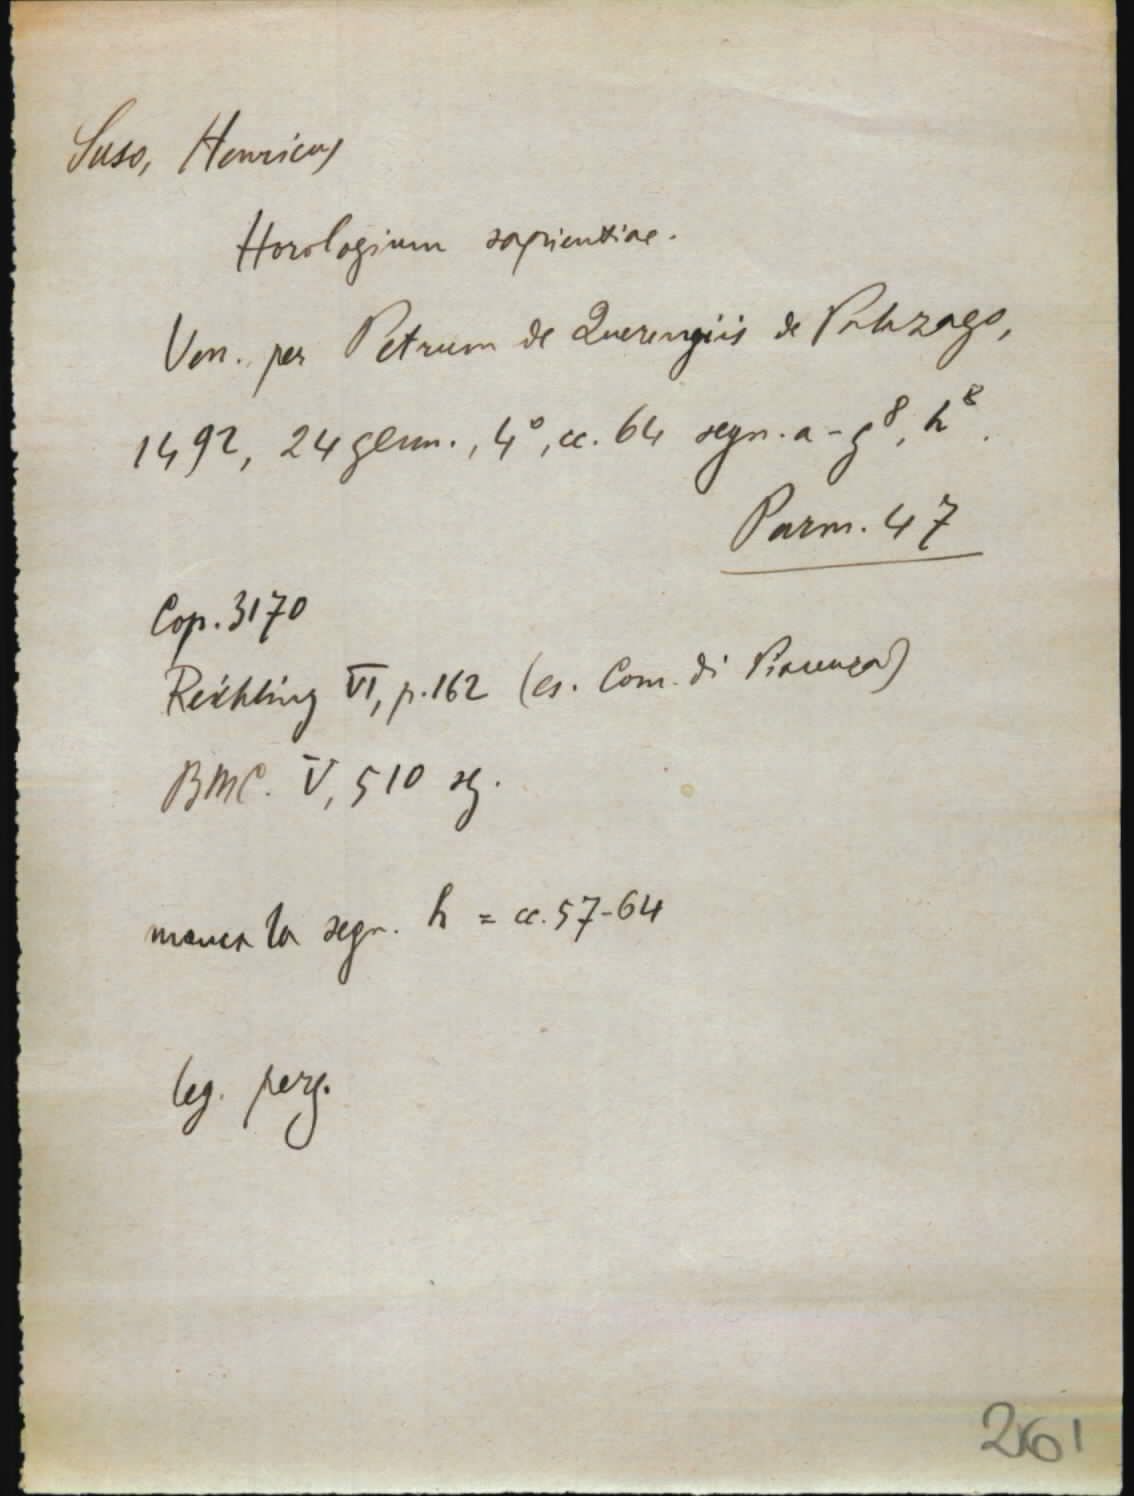 Suso, Henricus
Horologium sapientiae.
Ven. per Petrum de Querengiis de Palazago,
1492, 24 genn., 4°, cc. 64 segn. a-g⁸, h⁸.
Parm. 47
Cop. 3170
Reichling VI, p. 162 (es. Com. di Piacenza)
BMC. V, 510 sg.
manca la segn. h = cc. 57-64
leg. perg.
261